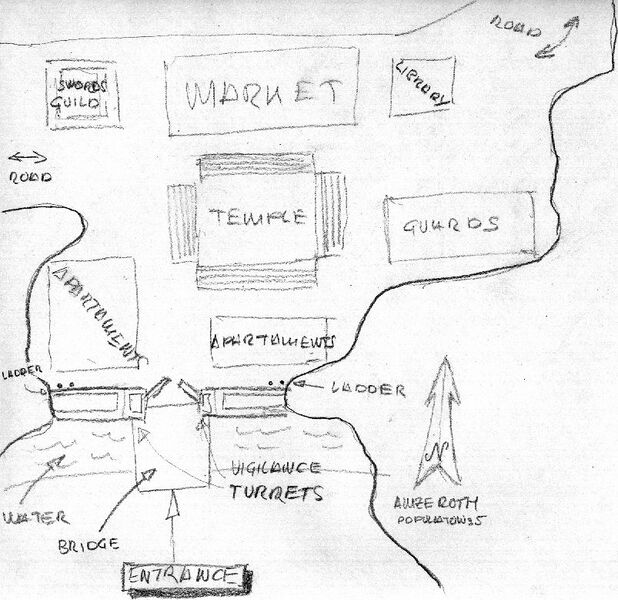 ROAD
SWORDS
GUILD
MARKET
LIBRARY
ROAD
TEMPLE
GUARDS
APARTAMENTS
APARTAMENTS
LADDER
LADDER
N
VIGILANCE
TURRETS
WATER
BRIDGE
ENTRANCE